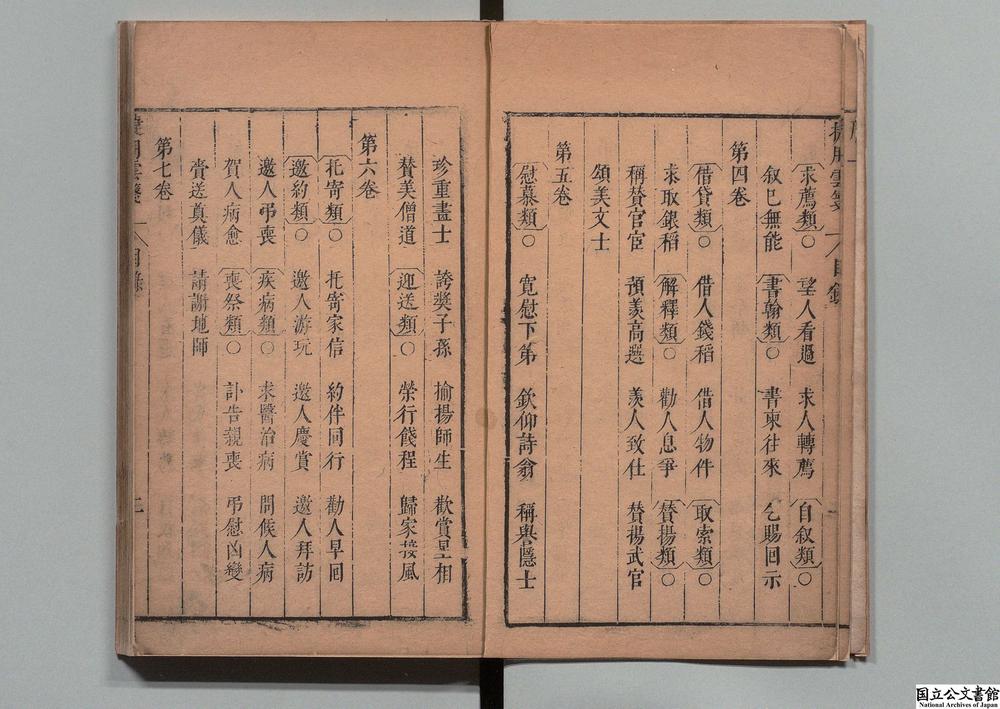 求薦類○　望人看過　求人轉薦　自叙類○
叙已無能　書翰類○　書柬往來　乞賜回示
第四卷
借貸類○　借人錢稻　借人物件　取索類○
求取銀稻　解釋類○　勸人息爭　賛揚類○
稱賛官宦　預羨高選　羨人致仕　賛揚武官
頌美文士
第五卷
慰慕類○　寬慰下第　欽仰詩翁　稱與隱士
珍重畫士　誇獎子孫　揄揚師生　歡賞星相
賛美僧道　迎送類○　榮行餞程　歸家接風
第六卷
托寄類○　托寄家信　約伴同行　勸人早回
邀約類○　邀人游玩　邀人慶賞　邀人拜訪
邀人弔喪　疾病類○　求醫治病　問候人病
賀人病愈　喪祭類○　訃告親喪　弔慰凶變
賫送奠儀　請謝地師
第七卷
目錄
二
国立公文書館
National Archives of Japan